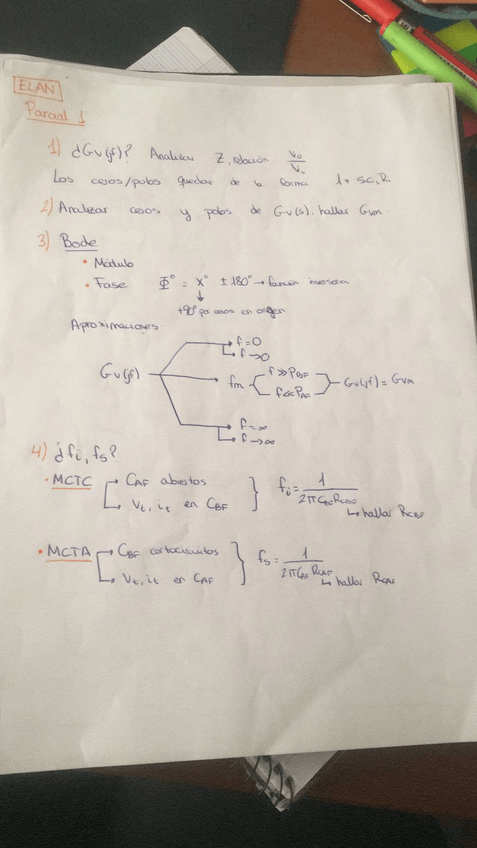 ELAN
Parcial 1
1) ¿Gv(jf)? Analizar Z, relación Vo/Vi
Los ceros/polos quedan de la forma 1 + SCiRi
2) Analizar ceros y polos de Gv(s). hallar Gvm.
3) Bode
• Módulo
• Fase Φ° = X° ± 180° → función inversora
+90° por ceros en origen
Aproximaciones:
f = 0
f → 0
Gv(jf) fm f >> PBF Gv(jf) = Gvm
f << PAF
f = ∞
f → ∞
4) ¿fi, fs?
• MCTC CAF abiertos fi = 1/2πCBFRCBF
Vt, it en CBF hallar RCBF
• MCTA CBF cortocircuitos fs = 1/2πCAFRCAF
Vt, it en CAF hallar RCAF